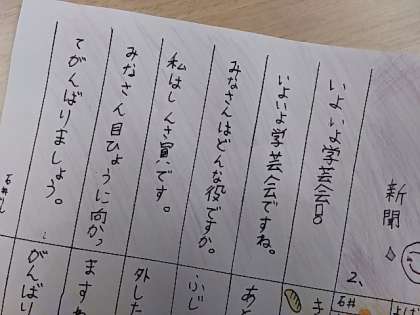 新聞
2、
いよいよ学芸会号
いよいよ学芸会ですね。
みなさんはどんな役ですか。
私はしんさ員です。
みなさん目ひょうに向かっ
てがんばりましょう。
石井
ふじ
外した
ますね
がんばり